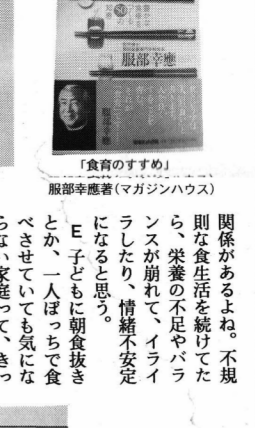 服部幸應
「食育のすすめ」
服部幸應著(マガジンハウス)
関係があるよね。不規
則な食生活を続けてた
ら、栄養の不足やバラ
ンスが崩れて、イライ
ラしたり、情緒不安定
になると思う。
E 子どもに朝食抜き
とか、一人ぼっちで食
べさせていても気にな
らない家庭って、きっ